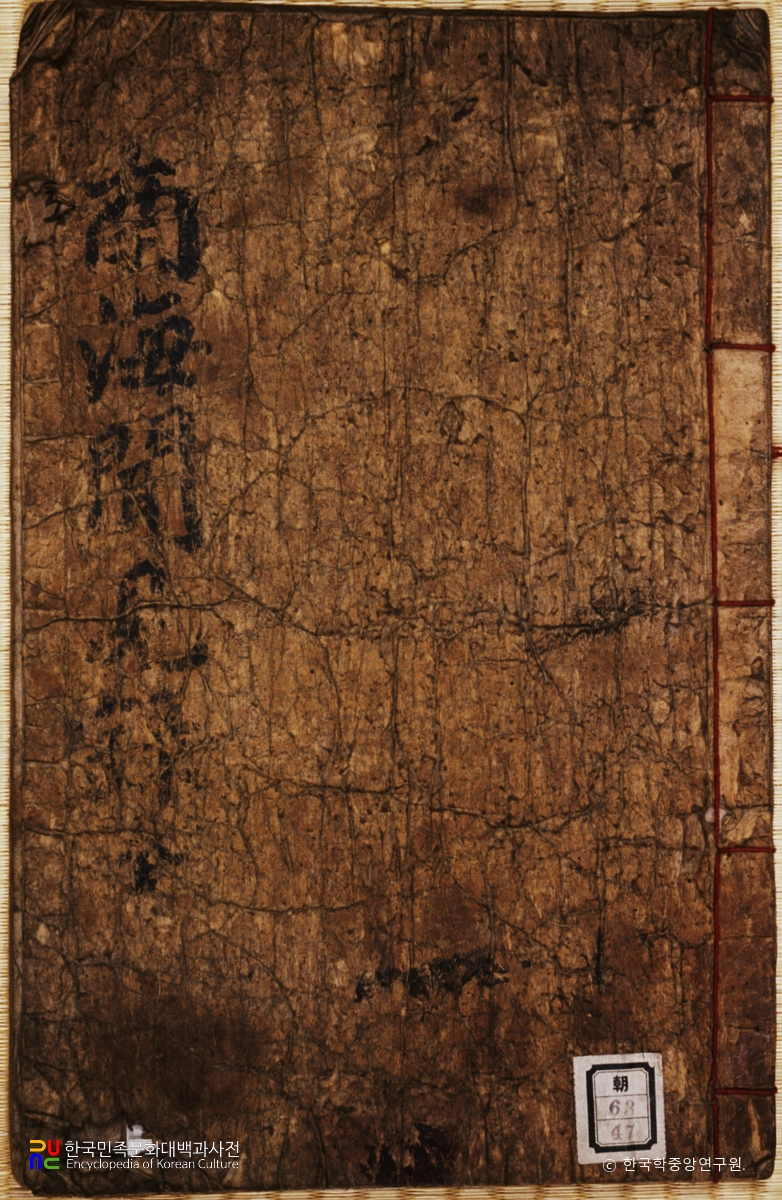 南海聞見錄
朝
63
47
한국민족문화대백과사전
Encyclopedia of Korean Culture
© 한국학중앙연구원.